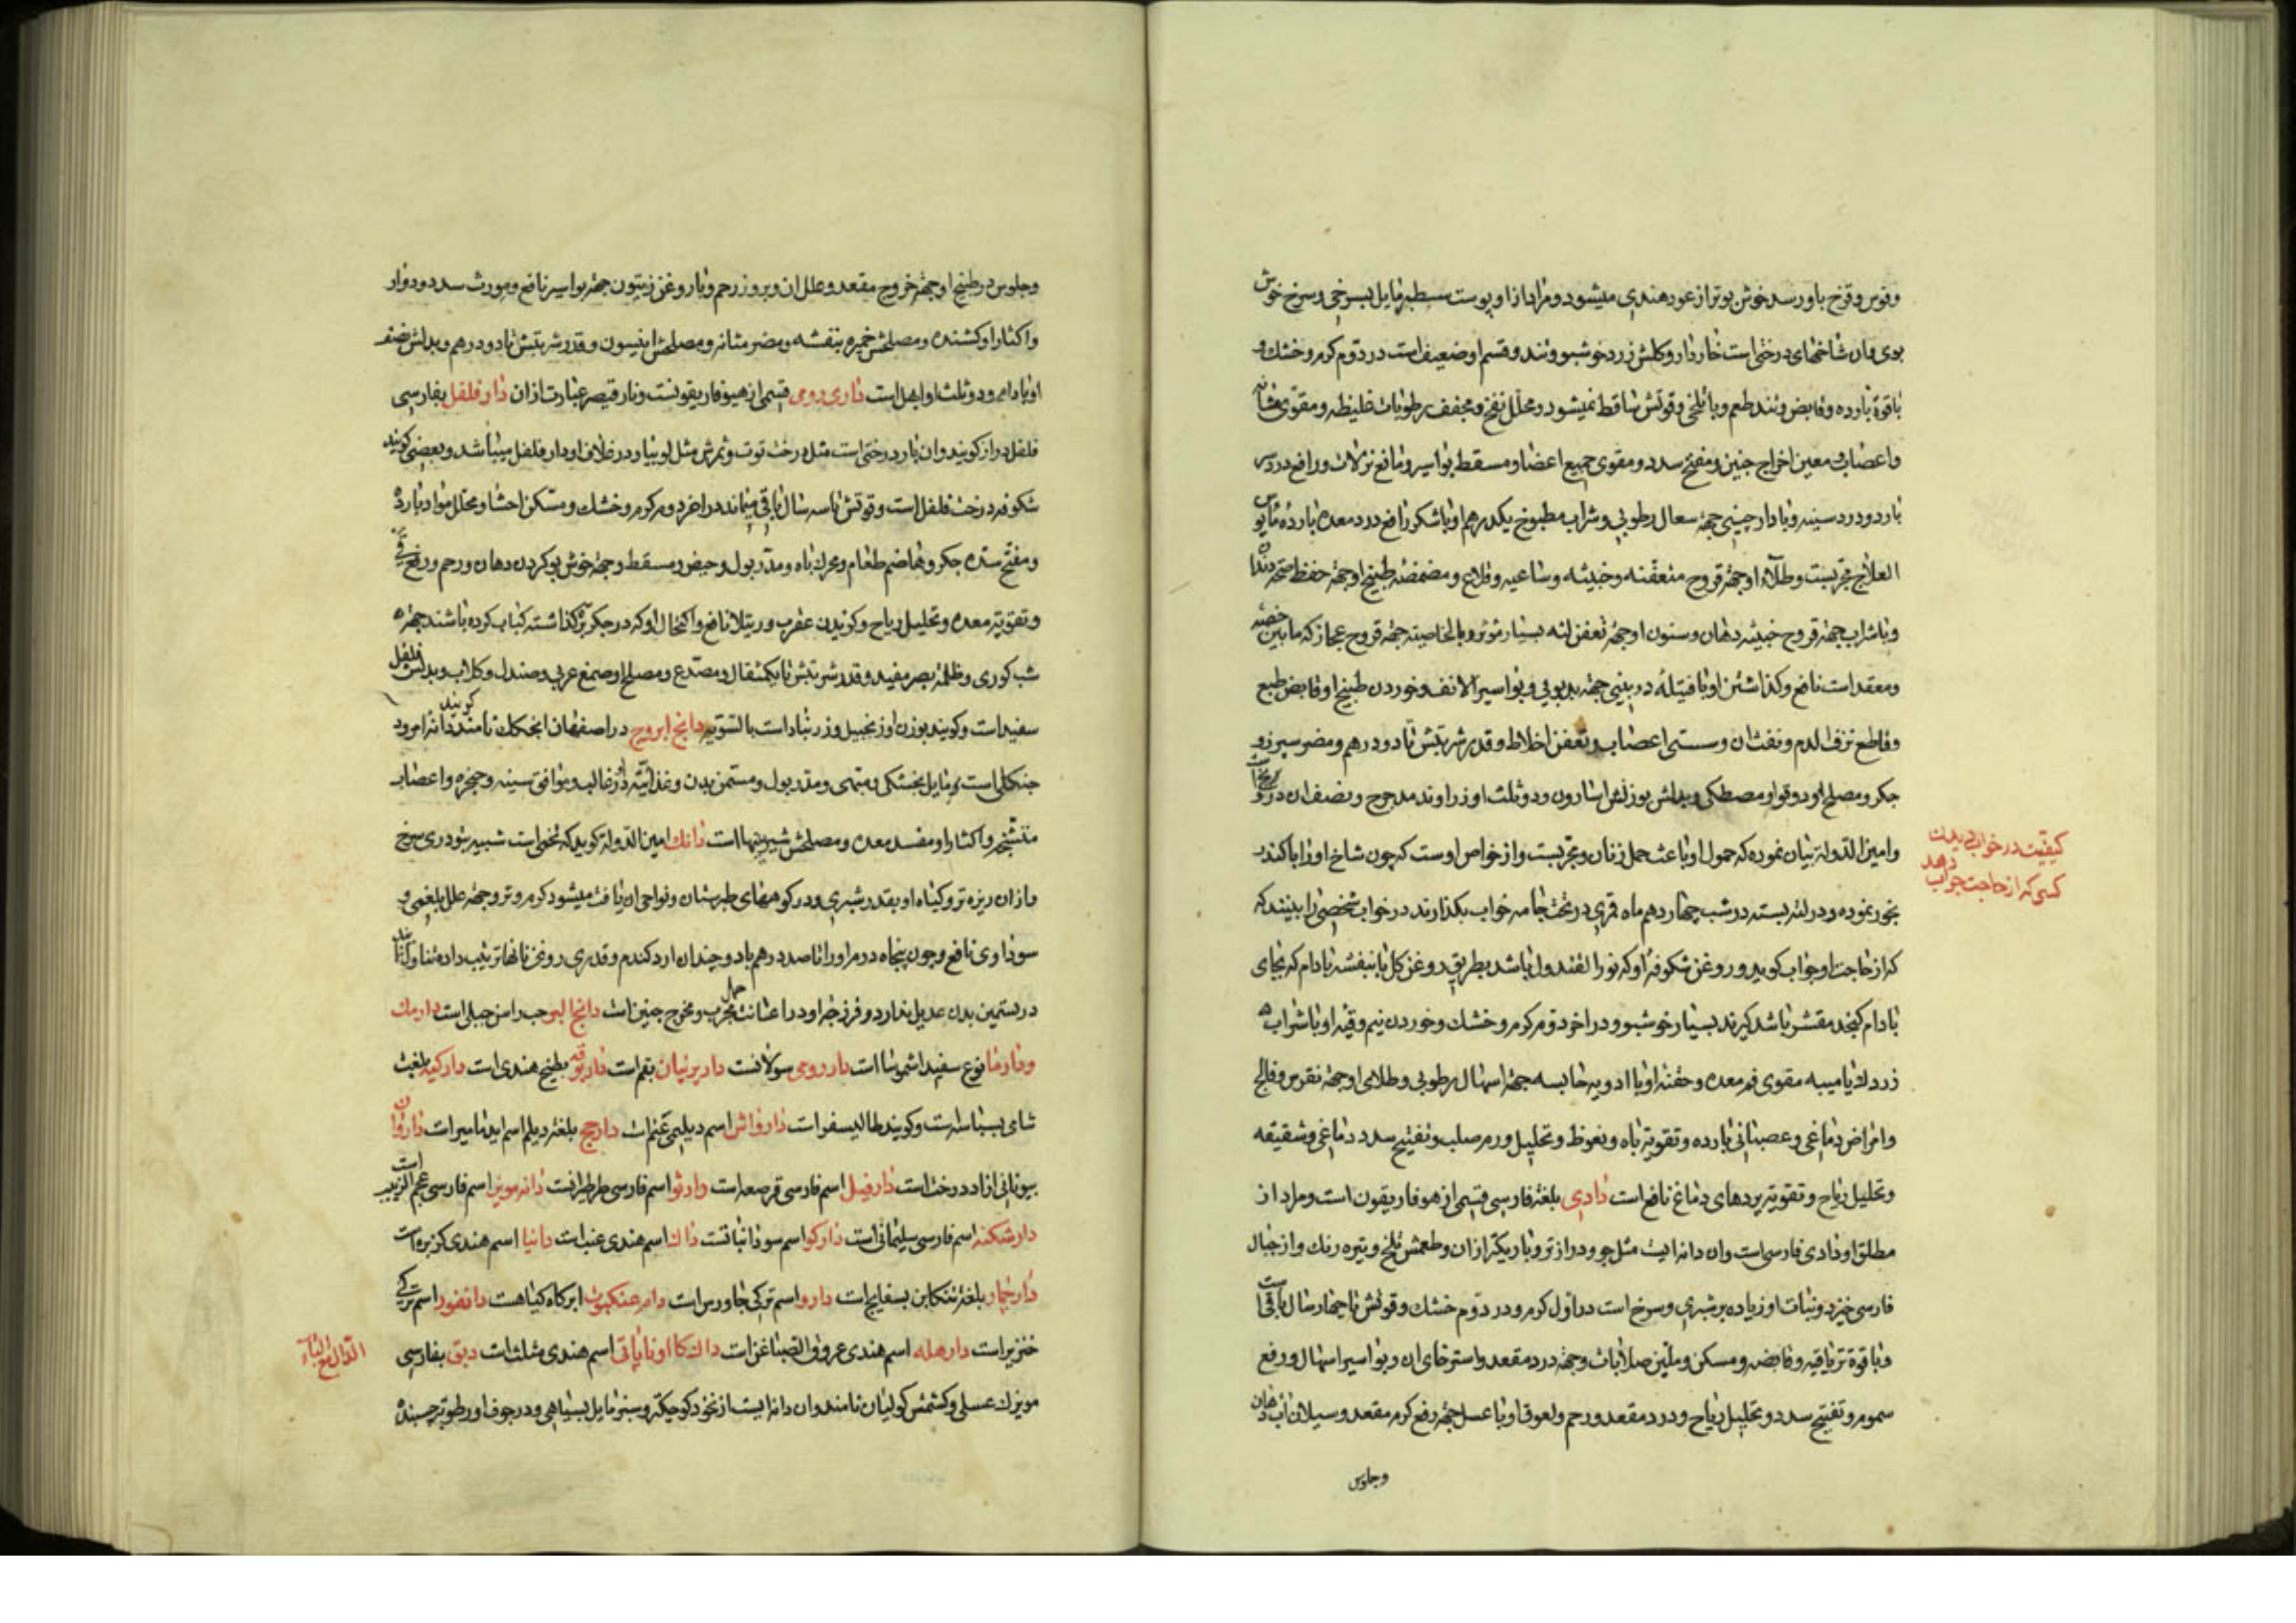 وقوس وقزح باو رسد خوش بوتر از عود هندی میشود و مراد ازو پوست سطبر مایل بسرخی و سرخ خوش
بوی وان شاخهای درختی است خاردار و کلش زرد خوشبو و تند و قسم او ضعیف است در دوم کرم و خشک و
باقوة بارده و قابض و تند طعم و با تلخی و قوتش ساقط نمیشود و محلل نفخ و مجفف رطوبات غلیظه و مقوی مثانه
واعصاب و معین اخراج جنین و مفتح سدد و مقوی جمیع اعضا و مسقط بواسیر و مانع نزلات و رافع درد سر
بارد و درد سینه و با دارچینی جهة سعال رطوبی و شراب مطبوخ یکدرهم او با شکر رافع درد معده بارده مایوس
العلاج مجربست و طلاء او جهة قروح متعفنه و خبیثه و ساعیه و قلاع و مضمضه طبیخ او جهة حفظ صحة دندان
و با شراب جهة قروح خبیثه دهان و سنون او جهة تعفن لثه بسیار مؤثر و بالخاصیته جهة قروح عجاز که ما بین خصیه
و معقد است نافع و کذاشتن او با فتیله در بینی جهة بدبویی و بواسیر الانف و خوردن طبیخ او قابض طبع
و قاطع نزف الدم و نفث ان و سستی اعصاب و تعفن اخلاط و قدر شربتش تا دو درهم و مضر سپرز و
جکر و مصلح او دوقو و مصطکی و بدلش بوزنش اسارون و دو ثلث او زراوند مدحرج و نصف ان
وامین الدوله بیان نموده که حمول او باعث حمل زنان و مجربست و از خواص اوست که چون شاخ او را با کندر
بخور نموده و در لته بسته در شب چهاردهم ماه قمری در تخت جامه خواب بکذارند در خواب شخصی را بینند که
که از حاجت او جواب کوید و روغن شکوفه او که نور القندول باشد بطریق روغن کل یا بنفشه بادام که بجای
بادام کنجد مقشر باشد کیرند بسیار خوشبو و در اخر دوم کرم و خشک و خوردن نیم وقیه او با شراب
زردک یا میبه مقوی فم معده و حقنه او با ادویه حابسه جهة اسهال رطوبی و طلای او جهة نقرس و فالج
و امراض دماغی و عصبانی بارده و تقویة باه و نعوظ و تحلیل ورم صلب و تفتیح سدد دماغی و شقیقه
و تحلیل ریاح و تقویة پردهای دماغ نافع است دادی بلغة فارسی قسمی از هوفاریقون است و مراد از
مطلق او دادی فارسی است وان دانه ایست مثل جو و درازتر و باریکتر ازان و طعمش تلخ و تیره رنک و از جبال
فارسی خیزد و نبات او زیاده بر شبری و سرخ است در اول کرم و در دوم خشک و قوتش تا چهار سال باقیست
و با قوة تریاقیه و قابضه و مسکن و ملین صلابات و جهة درد مقعد و استرخای ان و بواسیر و اسهال و رفع
سموم و تفتیح سدد و تحلیل ریاح و درد مقعد و رحم و لعوق او با عسل جهة رفع کرم مقعد و سیلان آب دهان
وجلوس
کیفیت در خواب دیدن
کسی که از حاجت جواب دهد
وجلوس در طبیخ او جهة خروج مقعد و علل ان و بروز رحم و با روغن زیتون جهة بواسیر نافع و مورث سدد و دوار
واکثار او کشنده و مصلحش خمیره بنفشه و مضر مثانه و مصلحش انیسون و قدر شربتش تا دو درهم و بدلش نصف
او بادام و دو ثلث او ابهل است دادی رومی قسمی از هیوفاریقونست و نار قیصر عبارت ازان دار فلفل بفارسی
فلفل دراز کویند وان بار درختی است مثل درخت توت و ثمرش مثل لوبیا و در غلاف او دار فلفل میباشد و بعضی کویند
شکوفه درخت فلفل است و قوتش تا سه سال باقی میماند در اخر دوم کرم و خشک و مسکن احشا و محلل مواد بارده
و مفتح سده جکر و هاضم طعام و محرک باه و مدر بول و حیض و مسقط و جهة خوش بو کردن دهان و رحم و رفع قی
و تقویة معده و تحلیل ریاح و کزیدن عقرب و رتیلا نافع و اکتحال او که در جکر بز کذاشته کباب کرده باشند جهة
شب کوری و ظلمة بصر مفید و قدر شربتش تا یکمثقال و مصدع و مصلح او صمغ عربی و صندل و کلاب و بدلش فلفل
سفید است و کویند بوزن او زنجبیل و زرنباد است بالسویه دانج ابروج در اصفهان انجکک نامند کویند دانه امرود
جنکلی است کرم مایل بخشکی و مبهی و مدر بول و مسمن بدن و غذائیه دران غالب و موافق سینه و حنجره و اعصاب
متشنجه و اکثار او مفسد معده و مصلحش شیرینیها است دانک امین الدوله کوید که تخمی است شبیه بتودری سرخ
و ازان ریزه تر و کیاه او بقدر شبری و در کوههای طبرستان و نواحی ان یافت میشود کرم و تر و جهة علل بلغمی و
سوداوی نافع و چون پنجاه درم او را تا صد درهم با دو چندان ارد کندم و قدری روغن نانها ترتیب داده تناول نمایند
در تسمین بدن عدیل ندارد و فرزجه او در اعانت حمل مجرب و مخرج جنین است دانج البو حب راس جبلی است دارمک
ودارما نوع سفید اشموسا است دار رومی سولانست دار برنیان بقم است بطیخ هندی است دارکیه بلغت
شامی بسباسه است و کویند طالیسفر است دارواش اسم دیلمی عنم است دارجج بلغة دیلم اسم ایدمامیر است داروان
بیونانی ازاد درخت است دارفیل اسم فارسی قرصعه است وارثو اسم فارسی طرطیرانت دانه مویز اسم فارسی عجم الزبیب است
دار شکنه اسم فارسی سلیمانی است دارکو اسم سورنباتست داک اسم هندی عنب است دانیا اسم هندی کزبره است
دار خمار بلغة تنکابن بسفایج است دارو اسم ترکی جاورس است دام عنکبوت ابرکاه کیاهست دانغور اسم ترکی
خنزیر است دارهلد اسم هندی عروق الصباغین است اسم هندی مثلث است دبق بفارسی
مویزک عسلی و کشمش کولیان نامند وان دانه ایست از نخود کوچکتر و سبز مایل بسیاهی و در جوف او رطوبة چسبنده
الدال مع الباء